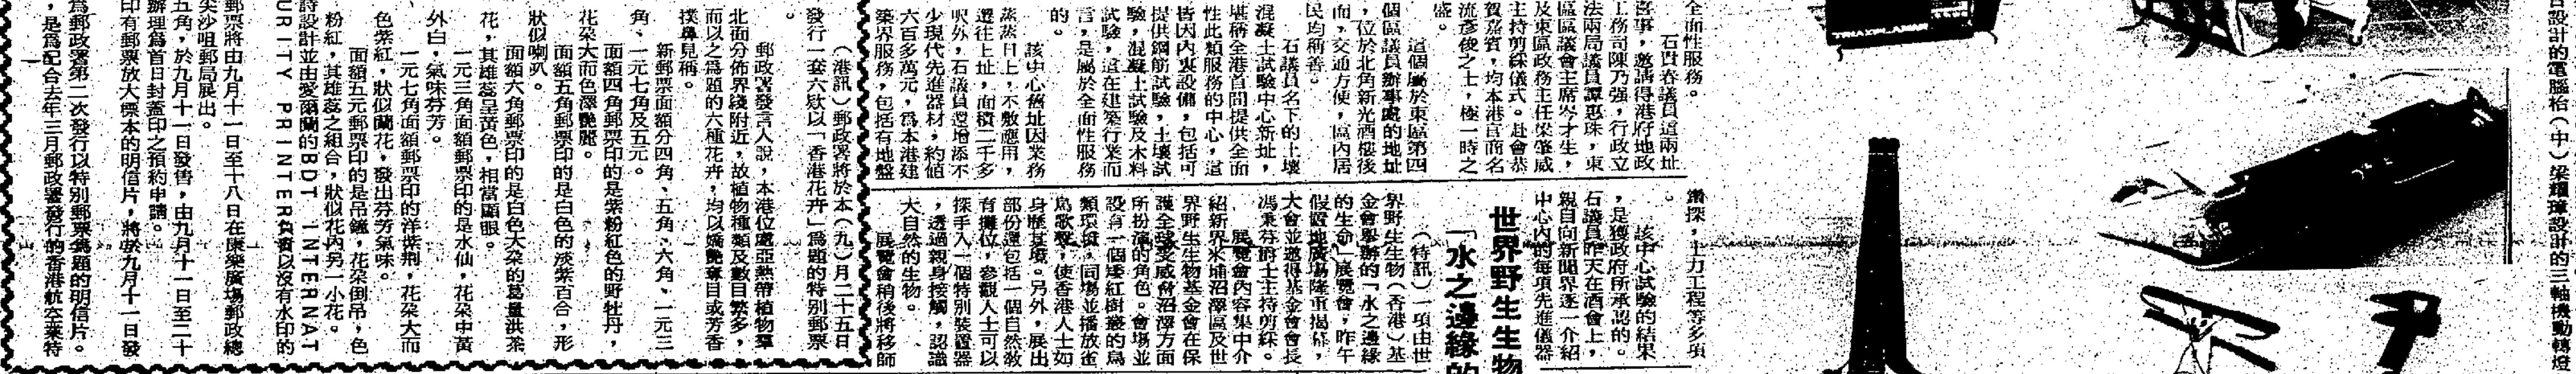 全面性服務。
石賀春議員這兩址
喜事，邀請得港府地政
工務司陳乃强，行政立
法兩局議員譚惠珠，東
區區議會主席岑才生，
及東區政務主任梁肇威
主持剪綵儀式。赴會恭
賀嘉賓，均本港官商名
流彥俊之士，極一時之
盛。
這個屬於東區第四
個區議員辦事處的地址
，位於北角新光酒樓後
面，交通方便，區內居
民均稱善。
石議員名下的土壤
混凝土試驗中心新址，
堪稱全港首間提供全面
性此類服務的中心，這
皆因內裏設備，包括可
提供鋼筋試驗，土壤試
驗，混凝土試驗及木料
試驗，這在建築行業而
言，是屬於全面性服務
的。
該中心舊址因業務
蒸蒸日上，不敷應用，
遷往上址，面積二千多
呎外，石議員還增添不
少現代先進器材，約值
六百多萬元，為本港建
築界服務，包括有地盤
鑽探，土力工程等多項
。
該中心試驗的結果
，是獲政府所承認的。
石議員昨天在酒會上，
親自向新聞界逐一介紹
中心內的每項先進儀器
世界野生生物
「水之邊緣的
（特訊）一項由世
界野生生物（香港）基
金會舉辦的「水之邊緣
的生命」展覽會，昨午
假置地廣場隆重揭幕，
大會並邀得基金會會長
馮秉芬爵士主持剪綵。
展覽會內容集中介
紹新界米埔沼澤區及世
界野生生物基金會在保
護全球受威脅沼澤方面
所扮演的角色。會場並
設有一個矮紅樹叢的鳥
類環境，同場並播放雀
鳥歌聲，使香港人士如
身歷其境。另外，展出
部份還包括一個自然教
育攤位，參觀人士可以
探手入一個特別裝置器
，透過親身接觸，認識
大自然的生物。
展覽會稍後將移師
（港訊）郵政署將於本（九）月二十五日
發行一套六欵以「香港花卉」為題的特別郵票
。
郵政署發言人說，本港位處亞熱帶植物羣
北面分佈界綫附近，故植物種類及數目繁多，
而以之為題的六種花卉，均以嬌艷奪目或芳香
撲鼻見稱。
新郵票面額分四角、五角、六角、一元三
角、一元七角及五元。
面額四角郵票印的是紫粉紅色的野牡丹，
花朵大而色澤艷麗。
面額五角郵票印的是白色的淡紫百合，形
狀似喇叭。
面額六角郵票印的是白色大朵的葛量洪茶
花，其雄蕊呈黃色，相當顯眼。
一元三角面額郵票印的是水仙，花朵中黃
外白，氣味芬芳。
一元七角面額郵票印的洋紫荆，花朵大而
色紫紅，狀似蘭花，發出芬芳氣味。
面額五元郵票印的是吊鐘，花朵倒吊，色
粉紅，其雄蕊之組合，狀似花內另一小花。
詩設計並由愛爾蘭的BDT INTERNAT
URITY PRINTERS負責以沒有水印的
郵票將由九月十一日至十八日在康樂廣場郵政總
尖沙咀郵局展出。
五角，於九月十一日發售，由九月十一日至二十
辦理為首日封蓋印之預約申請。
印有郵票放大標本的明信片，將於九月十一日發
為郵政署第二次發行以特別郵票為題的明信片。
，是為配合去年三月郵政署發行的香港航空業特
設計的電腦枱（中）梁輝
設計的三軸機動轉燈